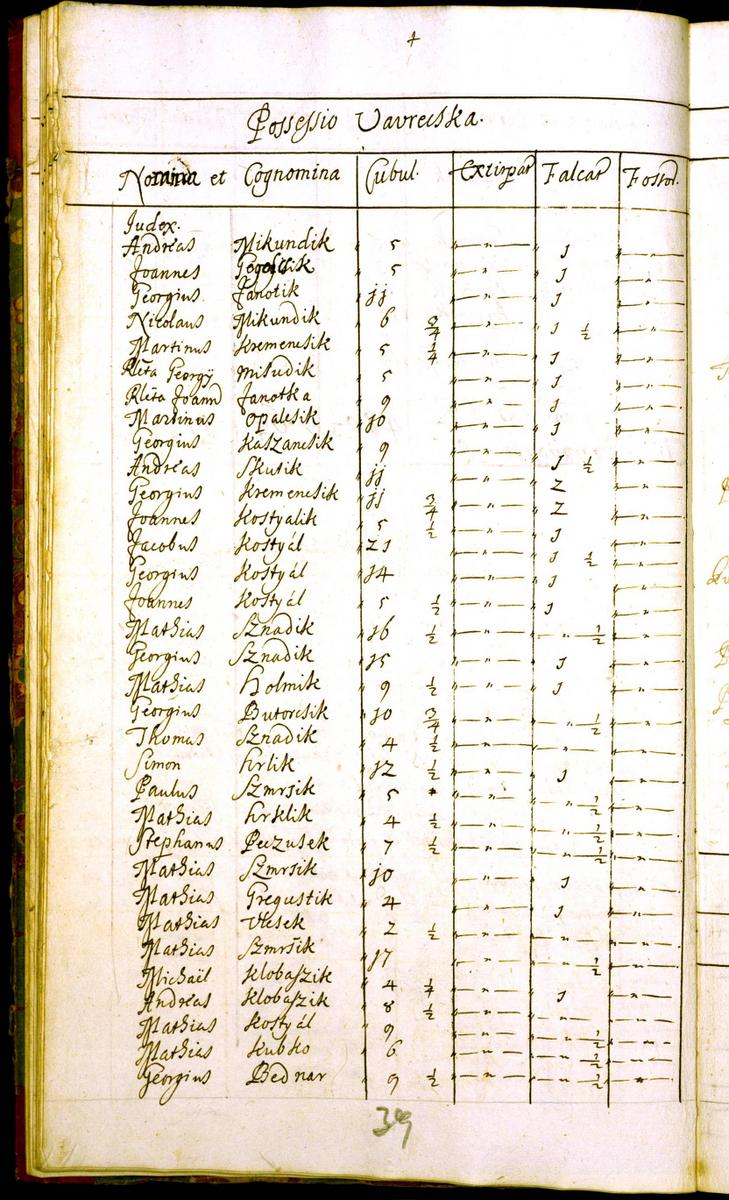 4
Possessio Vavrecska.
Nomina et Cognomina Cubul. Extirpat Falcat Fostor.
Judex.
Andreas Mikundik 5 " 1 "
Joannes 5 " 1 "
Georgius Janotik 11 " 1 "
Nicolaus Mikundik 6 3/4 " 1 1/2 "
Martinus Kremencsik 5 1/4 " 1 "
Rlta Georgÿ Misudik 5 " 1 "
Rlta Joann Janotka 9 " 1 "
Martinus Opalcsik 10 " 1 "
Georgius Kaszancsik 9 " 1 1/2 "
Andreas Skutik 11 " 2 "
Georgius Kremencsik 11 3/4 " 2 "
Joannes Kostyalik 5 1/2 " 1 "
Jacobus Kostyál 21 " 1 1/2 "
Georgius Kostyál 14 " 1 "
Joannes Kostyál 5 1/2 " 1 "
Mathias Sznadik 16 1/2 " " 1/2 "
Georgius Sznadik 15 " 1 "
Mathias Holmik 9 1/2 " 1 "
Georgius Butorcsik 10 3/4 " " 1/2 "
Thomas Sznadik 4 1/2 " " "
Simon Hrlik 12 1/2 " 1 "
Paulus Szmrsik 5 " " 1/2 "
Mathias Hrklik 4 1/2 " " 1/2 "
Stephanus Peczusek 7 1/2 " " 1/2 "
Mathias Szmrsik 10 " 1 "
Mathias Gregustik 4 " 1 "
Mathias Vlcsek 2 1/2 " " "
Mathias Szmrsik 17 " " 1/2 "
Michaël Klobaszik 4 1/4 " 1 "
Andreas Klobaszik 8 1/2 " " "
Mathias Kostyál 9 " " 1/2 "
Mathias Kubko 6 " " 1/2 "
Georgius Bednar 9 1/2 " " 1/2 "
39